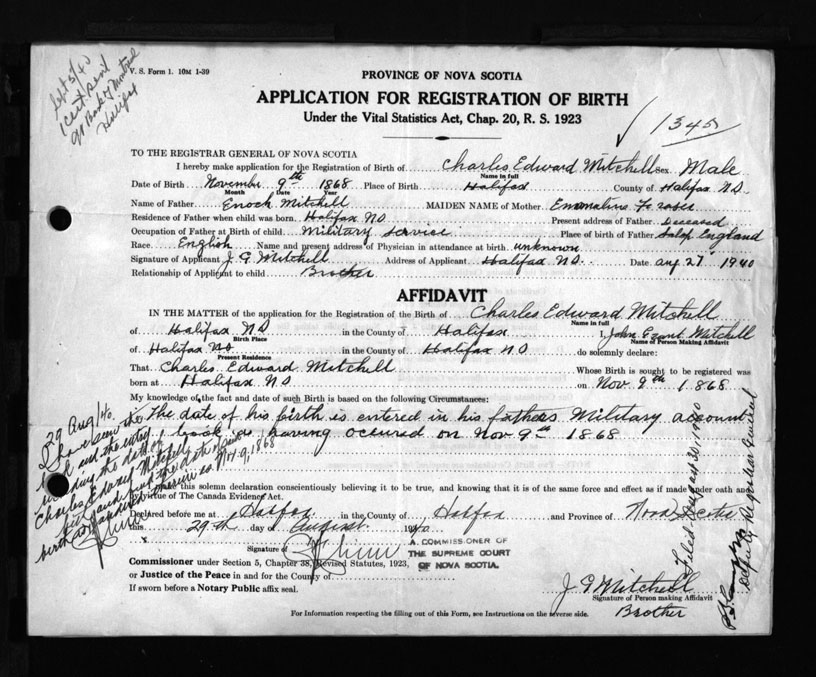 V. S. Form 1. 10M 1-39
Sept 3/40
1 cert sent
Bank of Montreal
Halifax
PROVINCE OF NOVA SCOTIA
APPLICATION FOR REGISTRATION OF BIRTH
Under the Vital Statistics Act, Chap. 20, R. S. 1923
TO THE REGISTRAR GENERAL OF NOVA SCOTIA
I hereby make application for the Registration of Birth of Charles Edward Mitchell Sex Male
Name in full
Date of Birth November 9th 1868 Place of Birth Halifax County of Halifax N.S.
Month Date Year
Name of Father Enoch Mitchell MAIDEN NAME of Mother Emmaline Fraser
Residence of Father when child was born Halifax NS Present address of Father Deceased
Occupation of Father at Birth of child Military Service Place of birth of Father Salop England
Race English Name and present address of Physician in attendance at birth unknown
Signature of Applicant J G Mitchell Address of Applicant Halifax NS. Date Aug 27 1940
Relationship of Applicant to child Brother
AFFIDAVIT
IN THE MATTER of the application for the Registration of the Birth of Charles Edward Mitchell
Name in full
of Halifax NS in the County of Halifax I, John Mitchell
Birth Place Name of Person Making Affidavit
of Halifax NS in the County of Halifax NS do solemnly declare:
Present Residence
That Charles Edward Mitchell Whose Birth is sought to be registered was
born at Halifax NS on Nov. 9th 1868
My knowledge of the fact and date of such Birth is based on the following Circumstances:
The date of his birth is entered in his fathers Military account
book as having occured on Nov 9th 1868
29 Aug/40.
I have seen the
book and the entry
Charles Edward Mitchell
birth Nov. 9, 1868
make this solemn declaration conscientiously believing it to be true, and knowing that it is of the same force and effect as if made under oath and
by virtue of The Canada Evidence Act.
Declared before me at Halifax in the County of Halifax and Province of Nova Scotia
this 29th day of August 1940
Signature of
A COMMISSIONER OF
THE SUPREME COURT
OF NOVA SCOTIA.
Commissioner under Section 5, Chapter 38, Revised Statutes, 1923,
or Justice of the Peace in and for the County of
If sworn before a Notary Public affix seal.
J G Mitchell
Signature of Person making Affidavit
Brother
For Information respecting the filling out of this Form, see Instructions on the reverse side.
Filed August 30, 1940
Deputy Registrar General